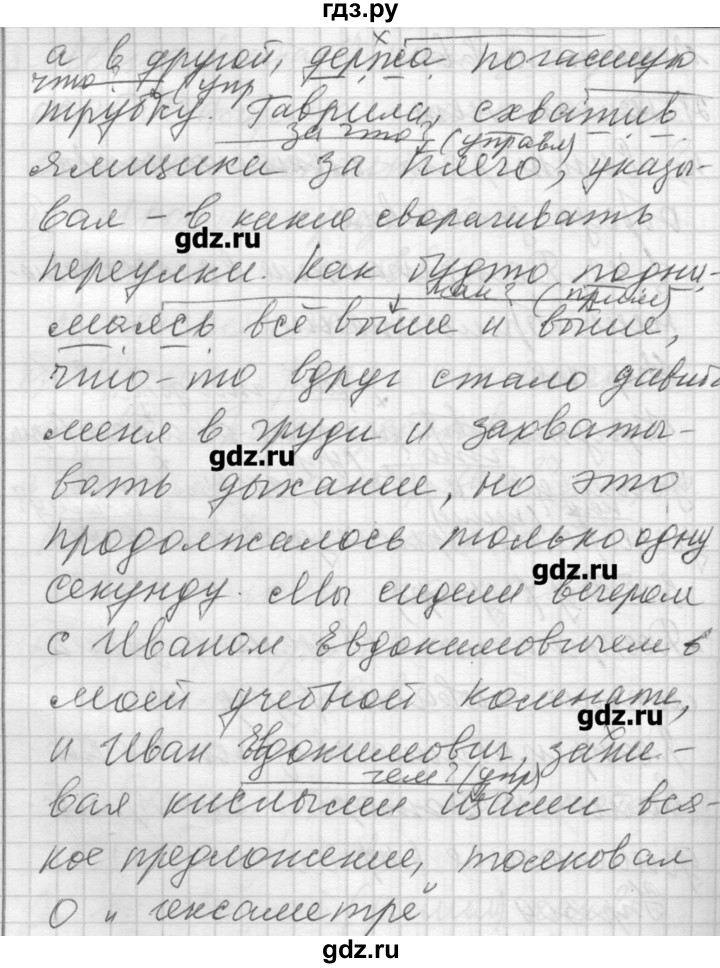 гдз.ру
а в другой, держа погасшую
что? (упр
трубку. Гаврила, схватив
за что? (управл)
ямщика за плечо, указы-
вал - в какие сворачивать
gdz.ru
переулки. Как будто подни-
как? (прим)
маясь всё выше и выше,
что-то вдруг стало давить
меня в груди и захваты-
gdz.ru
вать дыхание, но это
продолжалось только одну
gdz.ru
секунду. Мы сидели вечером
с Иваном Евдокимовичем в
моей учебной комнате,
gdz.ru
и Иван Евдокимович, запи-
чем? (упр)
вая кислыми щами вся-
кое предложение, толковал
о гексаметре
gdz.ru